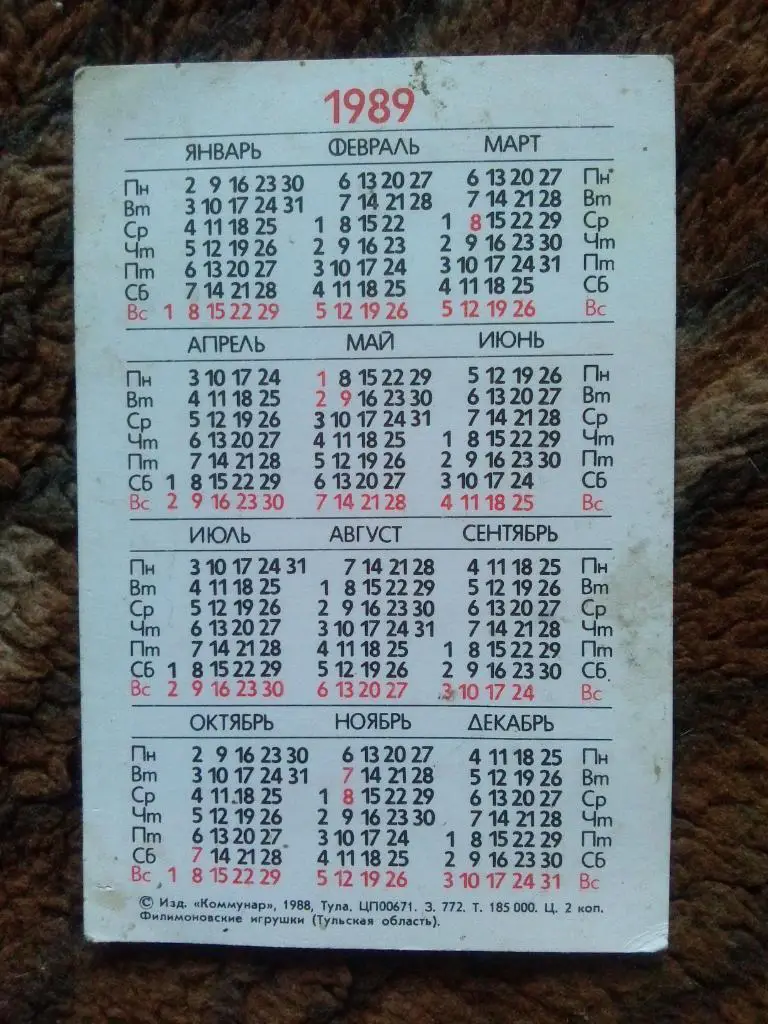 1989
ЯНВАРЬ ФЕВРАЛЬ МАРТ
Пн 2 9 16 23 30 6 13 20 27 6 13 20 27 Пн
Вт 3 10 17 24 31 7 14 21 28 7 14 21 28 Вт
Ср 4 11 18 25 1 8 15 22 1 8 15 22 29 Ср
Чт 5 12 19 26 2 9 16 23 2 9 16 23 30 Чт
Пт 6 13 20 27 3 10 17 24 3 10 17 24 31 Пт
Сб 7 14 21 28 4 11 18 25 4 11 18 25 Сб
Вс 1 8 15 22 29 5 12 19 26 5 12 19 26 Вс
АПРЕЛЬ МАЙ ИЮНЬ
Пн 3 10 17 24 1 8 15 22 29 5 12 19 26 Пн
Вт 4 11 18 25 2 9 16 23 30 6 13 20 27 Вт
Ср 5 12 19 26 3 10 17 24 31 7 14 21 28 Ср
Чт 6 13 20 27 4 11 18 25 1 8 15 22 29 Чт
Пт 7 14 21 28 5 12 19 26 2 9 16 23 30 Пт
Сб 1 8 15 22 29 6 13 20 27 3 10 17 24 Сб
Вс 2 9 16 23 30 7 14 21 28 4 11 18 25 Вс
ИЮЛЬ АВГУСТ СЕНТЯБРЬ
Пн 3 10 17 24 31 7 14 21 28 4 11 18 25 Пн
Вт 4 11 18 25 1 8 15 22 29 5 12 19 26 Вт
Ср 5 12 19 26 2 9 16 23 30 6 13 20 27 Ср
Чт 6 13 20 27 3 10 17 24 31 7 14 21 28 Чт
Пт 7 14 21 28 4 11 18 25 1 8 15 22 29 Пт
Сб 1 8 15 22 29 5 12 19 26 2 9 16 23 30 Сб
Вс 2 9 16 23 30 6 13 20 27 3 10 17 24 Вс
ОКТЯБРЬ НОЯБРЬ ДЕКАБРЬ
Пн 2 9 16 23 30 6 13 20 27 4 11 18 25 Пн
Вт 3 10 17 24 31 7 14 21 28 5 12 19 26 Вт
Ср 4 11 18 25 1 8 15 22 29 6 13 20 27 Ср
Чт 5 12 19 26 2 9 16 23 30 7 14 21 28 Чт
Пт 6 13 20 27 3 10 17 24 1 8 15 22 29 Пт
Сб 7 14 21 28 4 11 18 25 2 9 16 23 30 Сб
Вс 1 8 15 22 29 5 12 19 26 3 10 17 24 31 Вс
© Изд. «Коммунар», 1988, Тула. ЦП00671. З. 772. Т. 185 000. Ц. 2 коп.
Филимоновские игрушки (Тульская область).